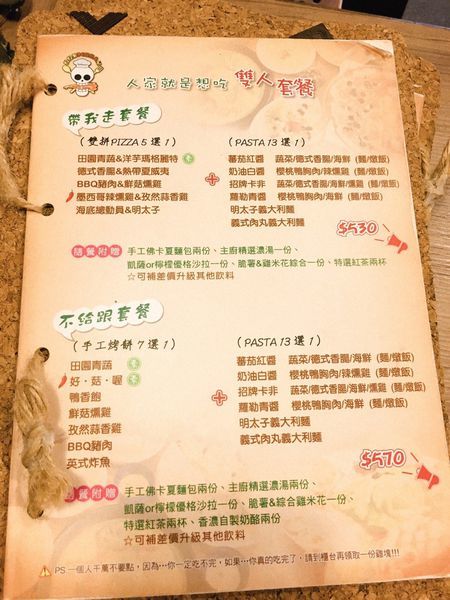 人家就是想吃 雙人套餐
帶我走套餐
(雙拼PIZZA 5 選 1)
田園青蔬&洋芋瑪格麗特
德式香腸&熱帶夏威夷
BBQ豬肉&鮮菇燻雞
墨西哥辣燻雞&孜然蒜香雞
海底總動員&明太子
+
(PASTA 13 選 1)
蕃茄紅醬 蔬菜/德式香腸/海鮮 (麵/燉飯)
奶油白醬 櫻桃鴨胸肉/辣燻雞 (麵/燉飯)
招牌卡非 蔬菜/德式香腸/海鮮/燻雞 (麵/燉飯)
蘿勒青醬 櫻桃鴨胸肉/海鮮 (麵/燉飯)
明太子義大利麵
義式肉丸義大利麵
$530
隨餐附贈 手工佛卡夏麵包兩份、主廚精選濃湯一份、
凱薩or檸檬優格沙拉一份、脆薯&雞米花綜合一份、特選紅茶兩杯
☆可補差價升級其他飲料
不給跟套餐
(手工烤餅 7 選 1)
田園青蔬
好‧菇‧喔
鴨香飽
鮮菇燻雞
孜然蒜香雞
BBQ豬肉
英式炸魚
+
(PASTA 13 選 1)
蕃茄紅醬 蔬菜/德式香腸/海鮮 (麵/燉飯)
奶油白醬 櫻桃鴨胸肉/辣燻雞 (麵/燉飯)
招牌卡非 蔬菜/德式香腸/海鮮/燻雞 (麵/燉飯)
蘿勒青醬 櫻桃鴨胸肉/海鮮 (麵/燉飯)
明太子義大利麵
義式肉丸義大利麵
$570
隨餐附贈 手工佛卡夏麵包兩份、主廚精選濃湯兩份、
凱薩or檸檬優格沙拉一份、脆薯&綜合雞米花一份、
特選紅茶兩杯、香濃自製奶酪兩份
☆可補差價升級其他飲料
PS 一個人千萬不要點，因為…你一定吃不完，如果…你真的吃完了，請到櫃台再領取一份雞塊!!!